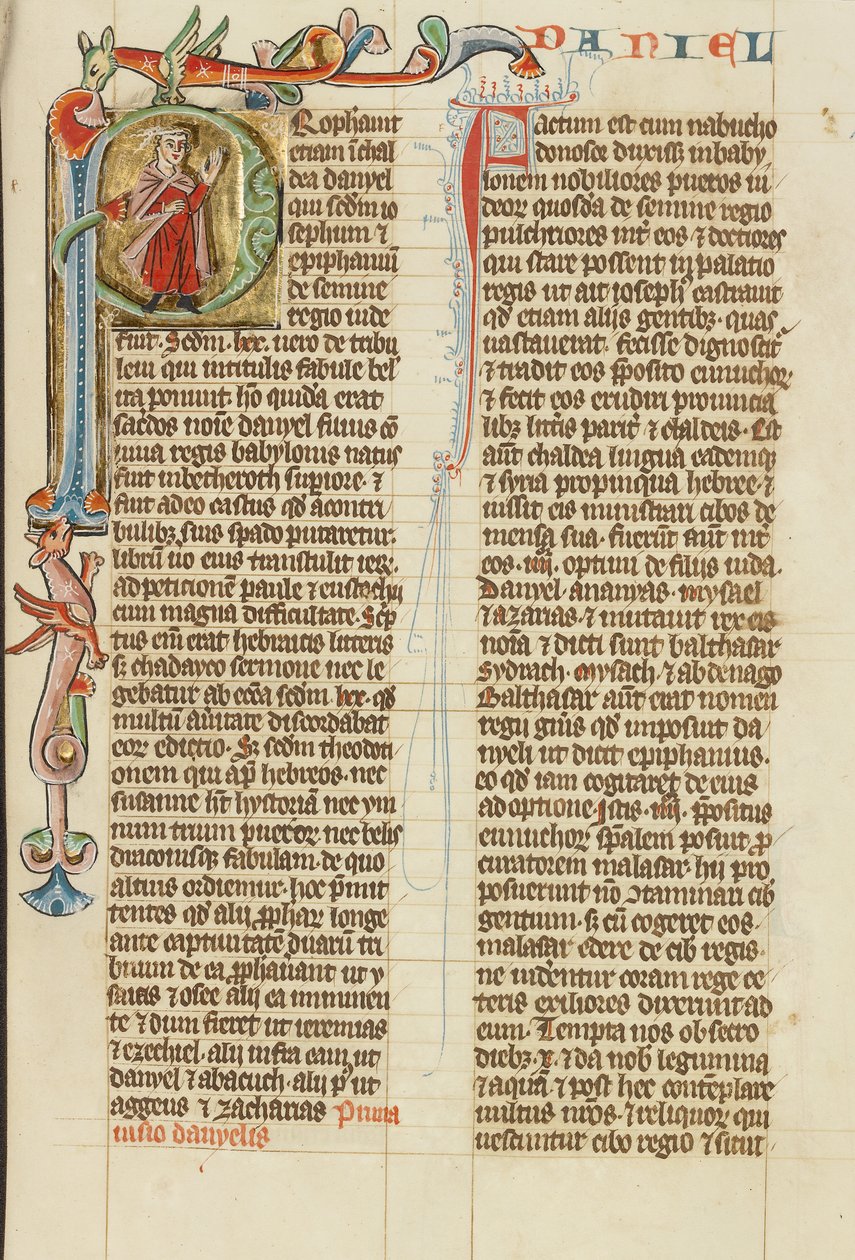 DANIEL
Rophauit
etiam ī chal
dea danyel
qui scd̄m io
sephum ⁊
epiphaniū
de semine
regio iude
fuit. Scd̄m. lxx. uero de tribu
leui qui in titulis fabule bel
ita ponunt. hō quidā erat
sac̄dos noīe danyel filius cō
uiua regis babylonis natus
fuit in betheroth supiore. ⁊
fuit adeo castus qd̄ a contri
bulibꝫ suis spado putaretur.
librū ūo eius transtulit iero.
ad peticionē paule ⁊ eustochii
cum magna difficultate. Scͥp
tus em̄ erat hebraicis litteris
sꝫ chadayco sermone nec le
gebatur ab ecc̄a scd̄m. lxx. qd̄
multū a ūitate discordabat
eoꝝ edictio. Sꝫ scd̄m theodoti
onem qui ap̄ hebreos. nec
susanne hn̄t hystoriā nec ym
num trium pueroꝝ. nec belis
draconisqꝫ fabulam. de quo
altius ordiemur. hoc p̄mit
tentes qd̄ alij ꝓphaꝝ longe
ante captiuitatē duarū tri
buum de ea ꝓphauant ut y
saias ⁊ osee alij ea imminen
te ⁊ dum fieret ut ieremias
⁊ ezechiel. alij infra eam ut
danyel ⁊ abacuch. alij pꝰ ut
aggeus ⁊ zacharias Prima
uisio danyelis
Factum est cum nabucho
donosor duxissꝫ in baby
lonem nobiliores pueros iu
deoꝝ quosdā de semine regio
pulchriores int̄ eos ⁊ doctiores
qui stare possent in palatio
regis ut ait iosephꝰ castrauit
qd̄ etiam alijs gentibꝫ. quas
uastauerat. fecisse dignoscit̄
⁊ tradit eos p̄posito eunuchoꝝ
⁊ fecit eos erudiri prouincia
libꝫ litt̄is parit̄ ⁊ chaldeis. Est
aūt chaldea lingua eademqꝫ
⁊ syria propinqua hebree. ⁊
iussit eis ministrari cibos de
mensa sua. fuerūt aūt int̄
eos. iiij. optimi de filijs iuda.
Danyel. ananyas. mysael
⁊ azarias. ⁊ mutauit rex eis
noīa ⁊ dicti sunt balthasar
Sydrach. Mysach. ⁊ abdenago
Balthasar aūt erat nomen
regū gn̄is qd̄ imposuit da
nyeli ut dicit epiphanius.
eo qd̄ iam cogitaret de eius
adoptione Istis. iiij. p̄positus
eunuchoꝝ sp̄alem posuit ꝓ
curatorem malasar. hij pro
posuerunt nō ꝯtaminari cib
gentium. sꝫ cū cogeret eos.
malasar edere de cib regis.
ne uidentur coram rege ce
teris exiliores dixerunt ad
eum. Tempta nos obsecro
diebꝫ. x. ⁊ da nob̄ legumina
⁊ aquā ⁊ post hec contēplare
uultus nr̄os. ⁊ reliquoꝝ qui
uescuntur cibo regio ⁊ sicut